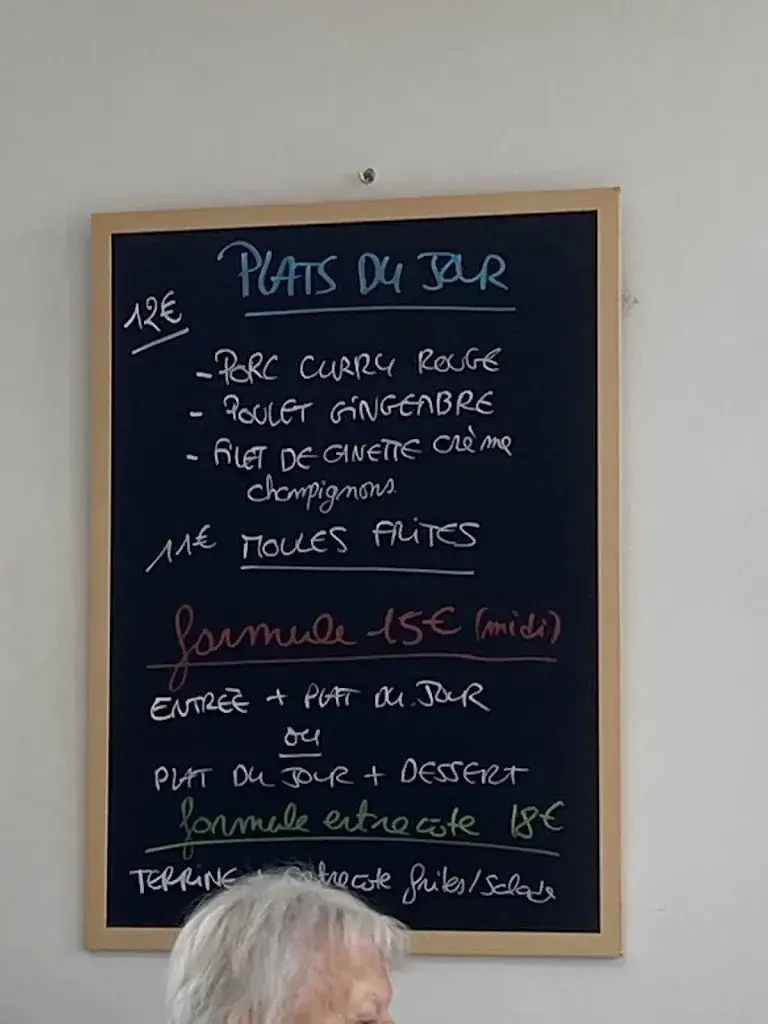 PLATS DU JOUR
12€
- PORC CURRY ROUGE
- POULET GINGEMBRE
- FILET DE GINETTE crème
champignons
11€ MOULES FRITES
formule 15€ (midi)
ENTREE + PLAT DU JOUR
ou
PLAT DU JOUR + DESSERT
formule entrecote 18€
TERRINE + entrecote frites/salade